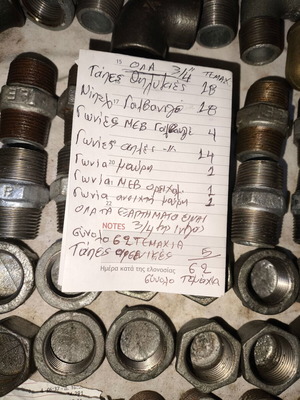 ΟΛΑ 3/4"
ΤΕΜΑΧ
Τάπες Θηλυκιές 18
Νίπελ Γαλβανιζέ 18
Γωνίες ΜΕΒ Γαλβανιζέ 4
Γωνίες απλές -"- 14
Γωνία μαύρη 1
Γωνία ΜΕΒ ορειχαλ. 1
Γωνία ανοιχτή μαύρη 1
ΟΛΑ ΤΑ ΕΞΑΡΤΗΜΑΤΑ ΕΙΝΑΙ
NOTES 3/4 της ίντσας
Σύνολο 62 ΤΕΜΑΧΙΑ
Τάπες αρσενικές 5
Ημέρα κατά της ελονοσίας 62
σύνολο τεμαχια